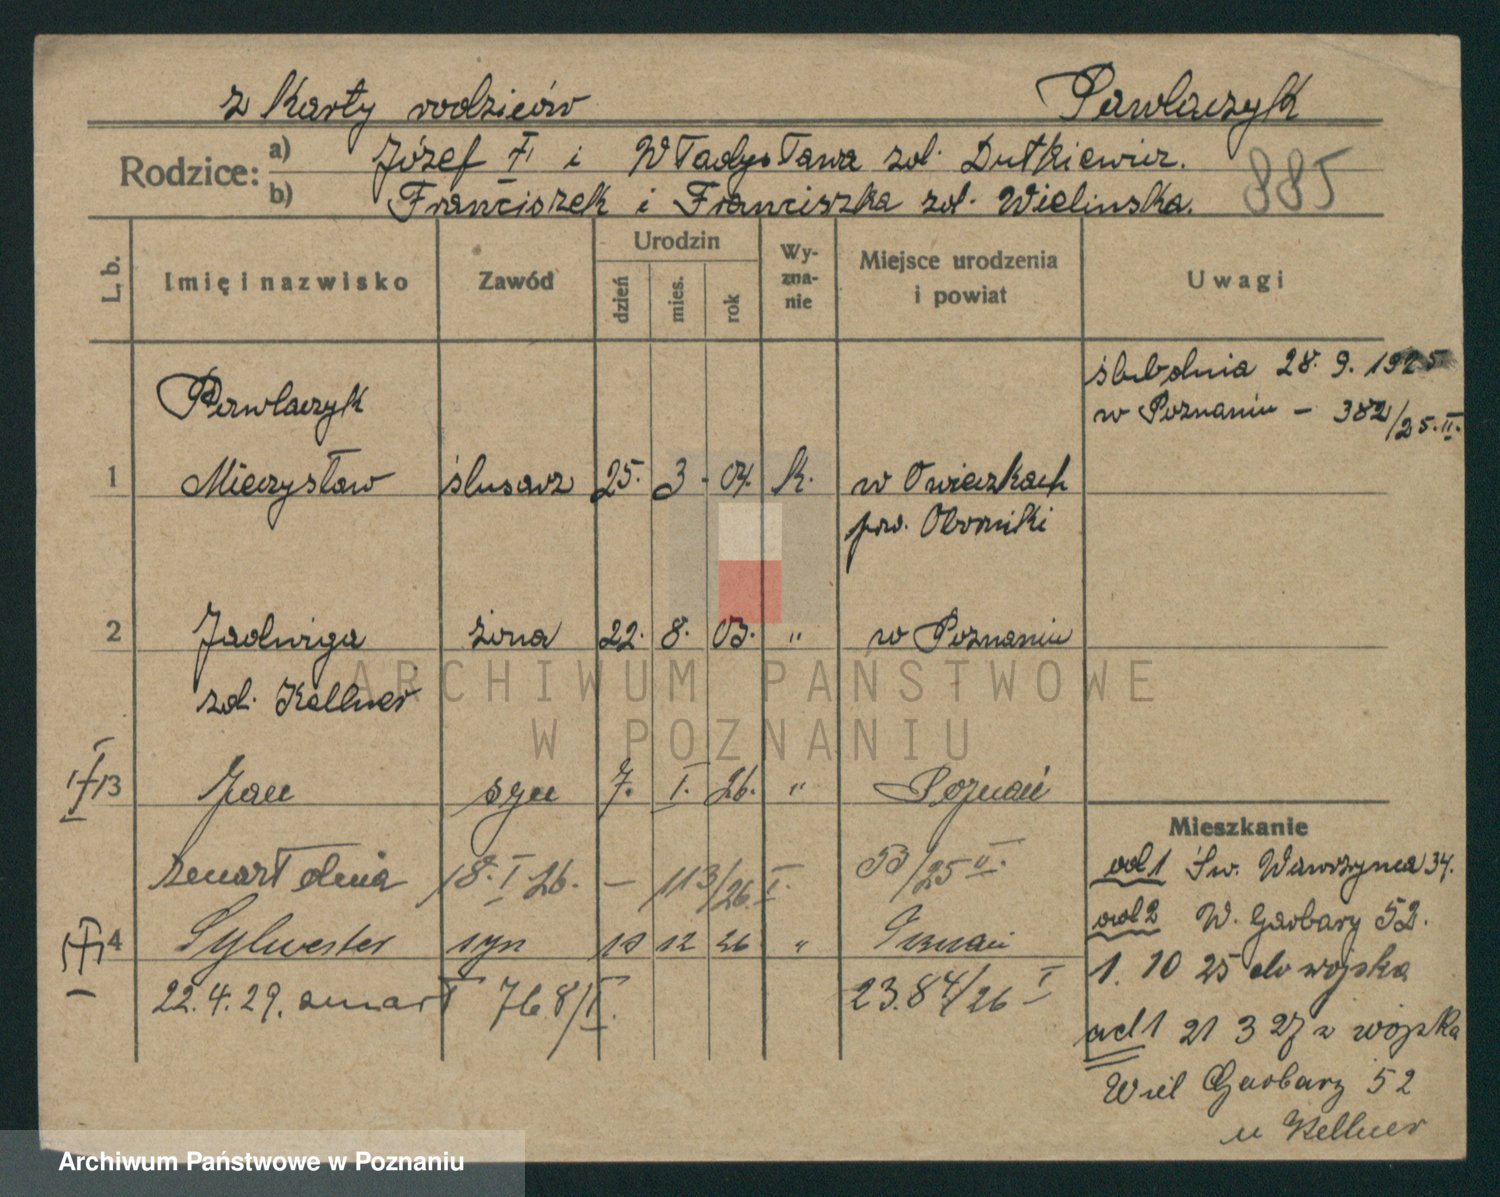 z Karty rodziców Pawlaczyk
Rodzice: a) Józef † i Władysława zd. Dutkiewicz.
b) Franciszek i Franciszka zd. Wielinska.
885
L. b. Imię i nazwisko Zawód Urodzin dzień mies. rok Wyznanie Miejsce urodzenia i powiat Uwagi
ślub dnia 28. 9. 1925
w Poznaniu – 382/25. II.
Pawlaczyk
1 Mieczysław ślusarz 25. 3. 04. k. w Owieczkach
pow. Oborniki
2 Jadwiga żona 22. 8. 03. " w Poznaniu
zd. Kellner
ARCHIWUM PAŃSTWOWE
W POZNANIU
3 Jan syn 7. I. 26. " Poznań
zmarł dnia 18. I. 26. – 113/26. I. 53/25 II.
4 Sylwester syn 10 12 26 " Poznań
22. 4. 29. zmarł 768/I. 23.84/26 I
Mieszkanie
ad 1 Św. Wawrzyńca 34.
ad 2 W. Garbary 52.
1. 10 25 do wojska
ad 1 21 3 27 z wojska
Wiel Garbary 52
u Kellner
Archiwum Państwowe w Poznaniu